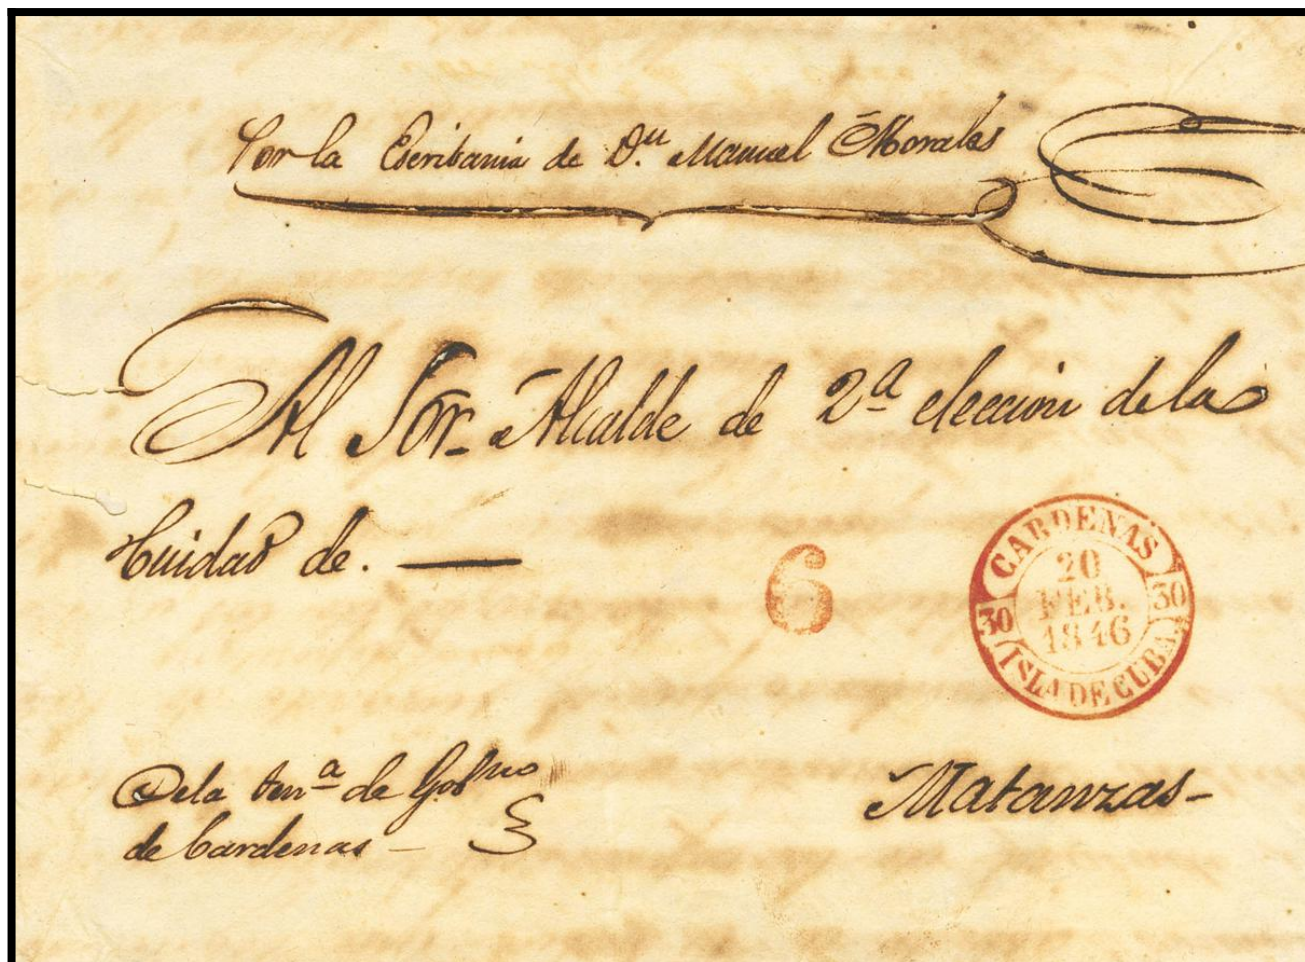 Por la Escribania de D.n Manuel Morales
Al Sor. Alcalde de 2ª eleccion de la
Ciudad de. —
6
CARDENAS
20
FEB.
1846
30 30
ISLA DE CUBA
De la ten.ª de Gobno
de Cardenas —
Matanzas -